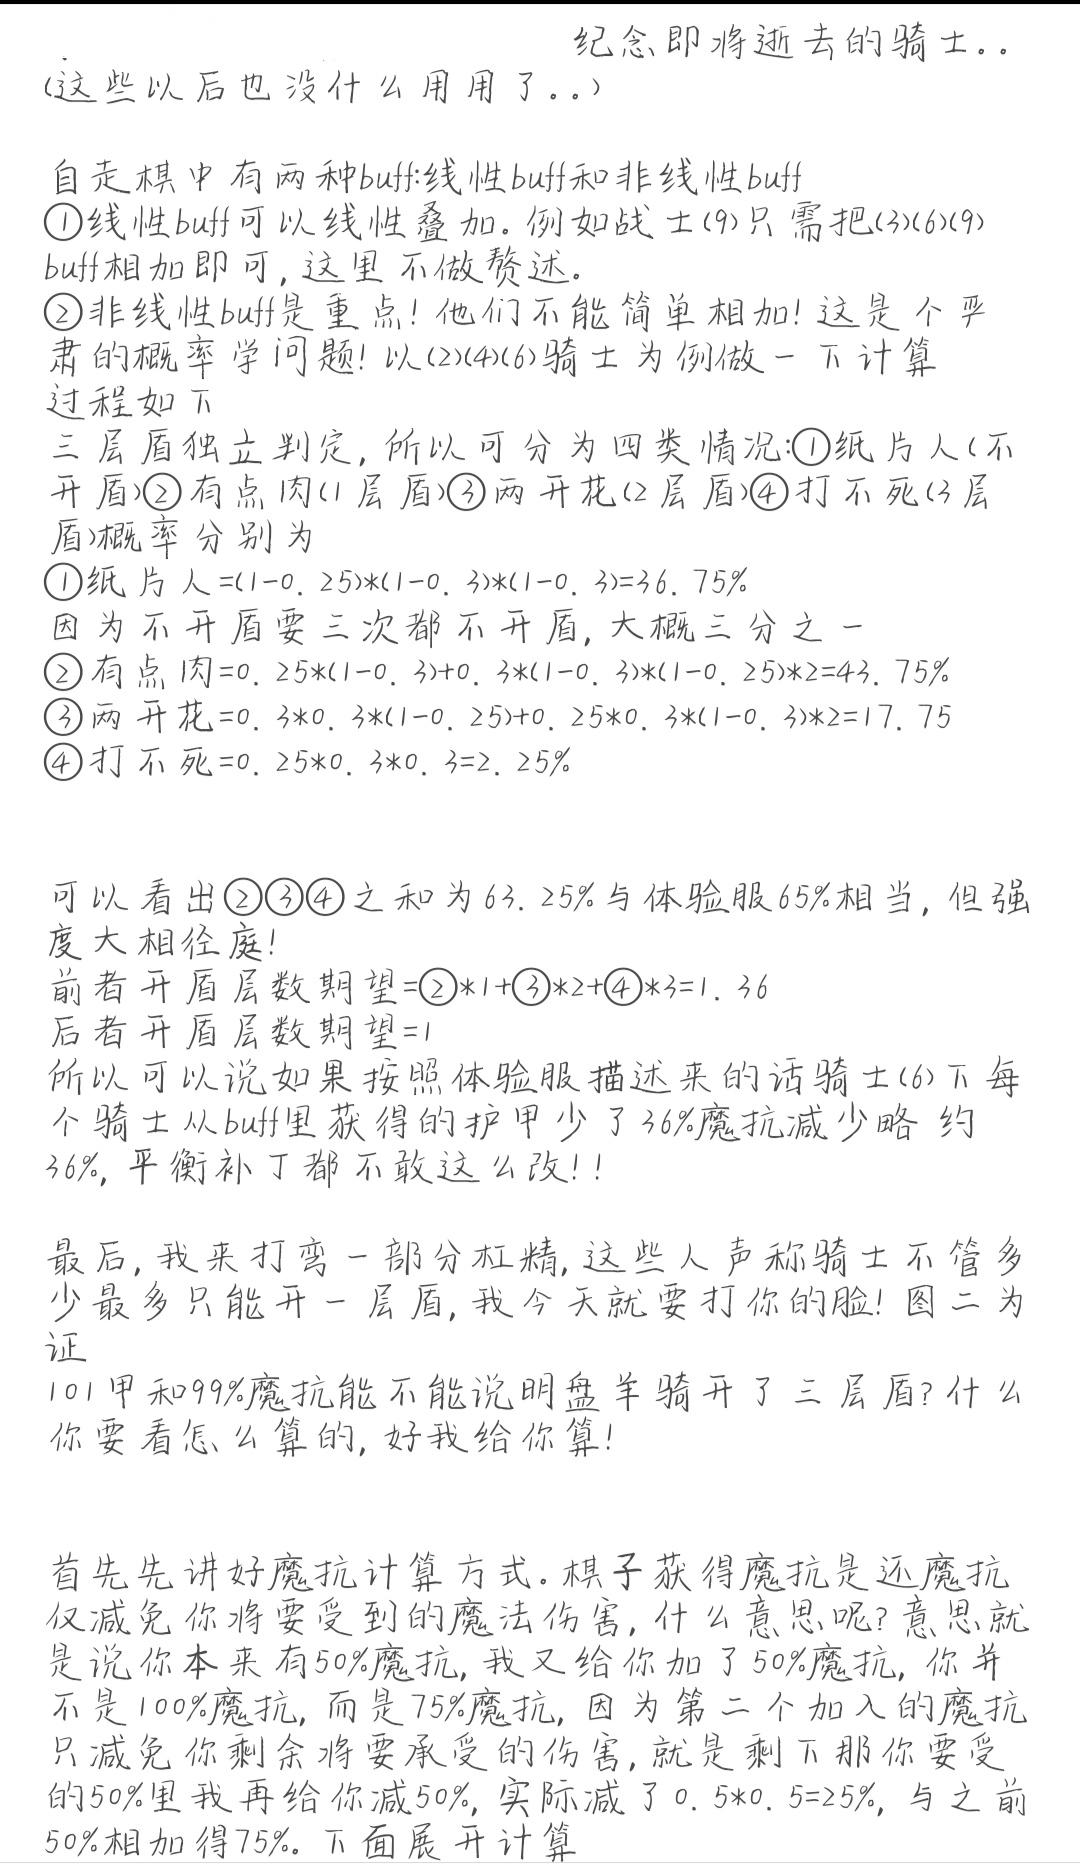 纪念即将逝去的骑士..
(这些以后也没什么用用了..)
自走棋中有两种buff:线性buff和非线性buff
①线性buff可以线性叠加。例如战士(9)只需把(3)(6)(9)
buff相加即可,这里不做赘述。
②非线性buff是重点!他们不能简单相加!这是个严
肃的概率学问题!以(2)(4)(6)骑士为例做一下计算
过程如下
三层盾独立判定,所以可分为四类情况:①纸片人(不
开盾)②有点肉(1层盾)③两开花(2层盾)④打不死(3层
盾)概率分别为
①纸片人=(1-0.25)*(1-0.3)*(1-0.3)=36.75%
因为不开盾要三次都不开盾,大概三分之一
②有点肉=0.25*(1-0.3)+0.3*(1-0.3)*(1-0.25)*2=43.75%
③两开花=0.3*0.3*(1-0.25)+0.25*0.3*(1-0.3)*2=17.75
④打不死=0.25*0.3*0.3=2.25%
可以看出②③④之和为63.25%与体验服65%相当,但强
度大相径庭!
前者开盾层数期望=②*1+③*2+④*3=1.36
后者开盾层数期望=1
所以可以说如果按照体验服描述来的话骑士(6)下每
个骑士从buff里获得的护甲少了36%魔抗减少略约
36%,平衡补丁都不敢这么改!!
最后,我来打弯一部分杠精,这些人声称骑士不管多
少最多只能开一层盾,我今天就要打你的脸!图二为
证
101甲和99%魔抗能不能说明盘羊骑开了三层盾?什么
你要看怎么算的,好我给你算!
首先先讲好魔抗计算方式。棋子获得魔抗是还魔抗
仅减免你将要受到的魔法伤害,什么意思呢?意思就
是说你本来有50%魔抗,我又给你加了50%魔抗,你并
不是100%魔抗,而是75%魔抗,因为第二个加入的魔抗
只减免你剩余将要承受的伤害,就是剩下那你要受
的50%里我再给你减50%,实际减了0.5*0.5=25%,与之前
50%相加得75%。下面展开计算